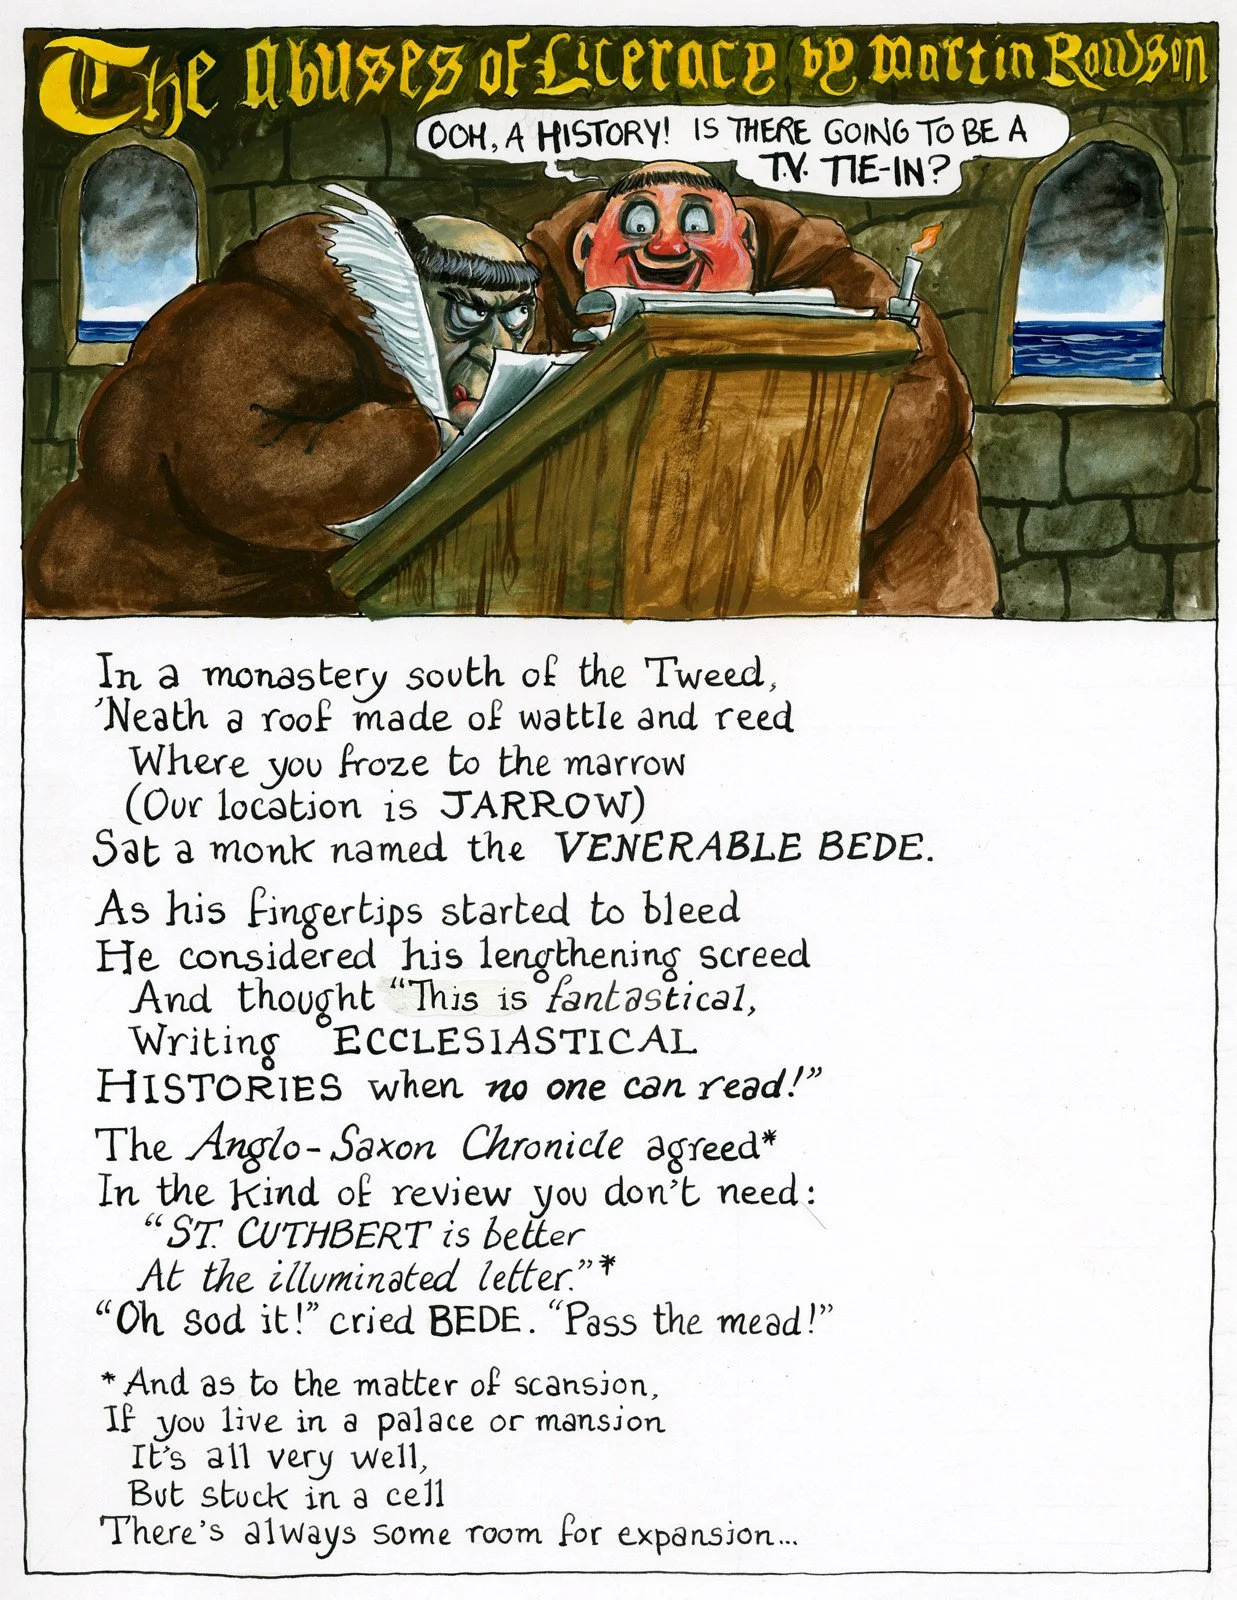 The Abuses of Literacy by Martin Rowson
OOH, A HISTORY! IS THERE GOING TO BE A
T.V. TIE-IN?
In a monastery south of the Tweed,
'Neath a roof made of wattle and reed
Where you froze to the marrow
(Our location is JARROW)
Sat a monk named the VENERABLE BEDE.
As his fingertips started to bleed
He considered his lengthening screed
And thought "This is fantastical,
Writing ECCLESIASTICAL
HISTORIES when no one can read!"
The Anglo-Saxon Chronicle agreed*
In the kind of review you don't need:
"ST. CUTHBERT is better
At the illuminated letter."*
"Oh sod it!" cried BEDE. "Pass the mead!"
*And as to the matter of scansion,
If you live in a palace or mansion
It's all very well,
But stuck in a cell
There's always some room for expansion...